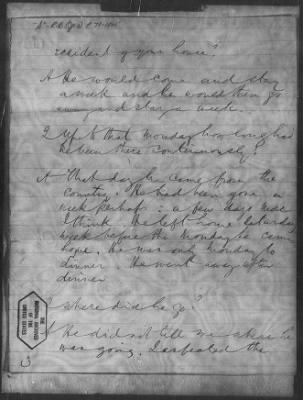 resident of your house?
A He would come and stay
a week and he would then go
away and stay a week.
Q Up to that Monday how long had
he been there continuously?
A That day he came from the
country. He had been gone a
week perhaps; a few days more
I think. He left home Saturday
week before the Monday he came
home. He was one Monday to
dinner. He went away after
dinner
Q Where did he go?
A He did not tell me where he
was going. I expected the
THE
NATIONAL ARCHIVES
OF THE
UNITED STATES